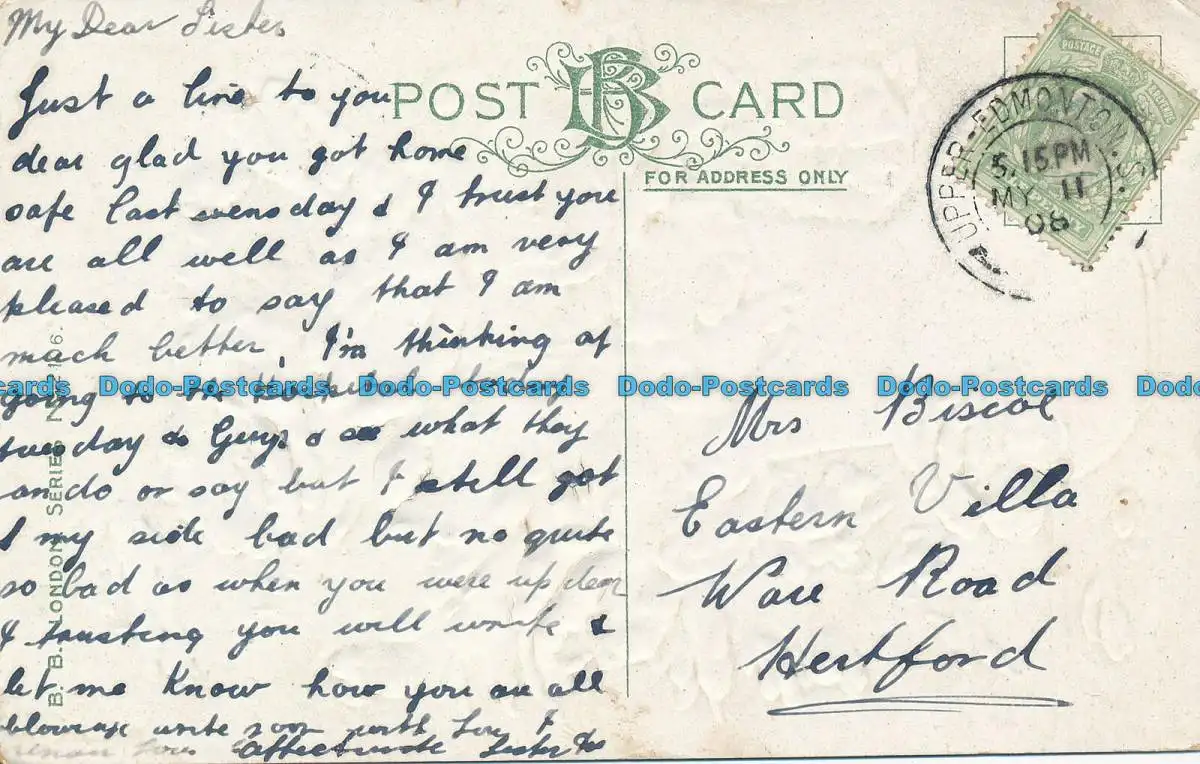 My Dear Sister
Just a line to you
dear glad you got home
safe last wensday & I trust you
are all well as I am very
pleased to say that I am
mach better, I'm thinking of
going to the
tuesday to Guys & see what they
or say but I still got
my side bad but no quite
so bad as when you were up dear
& trusting you will write &
let me know how you are all
write soon with love &
love affectinate Sister
B. B. LONDON SERIES No.
POST CARD
BB
FOR ADDRESS ONLY
POSTAGE
UPPER-EDMONTON
5.15PM
MY 11
08
Mrs Biscoe
Eastern Villa
Ware Road
Hertford
Dodo-Postcards Dodo-Postcards Dodo-Postcards Dodo-Postcards Dodo-Postcards